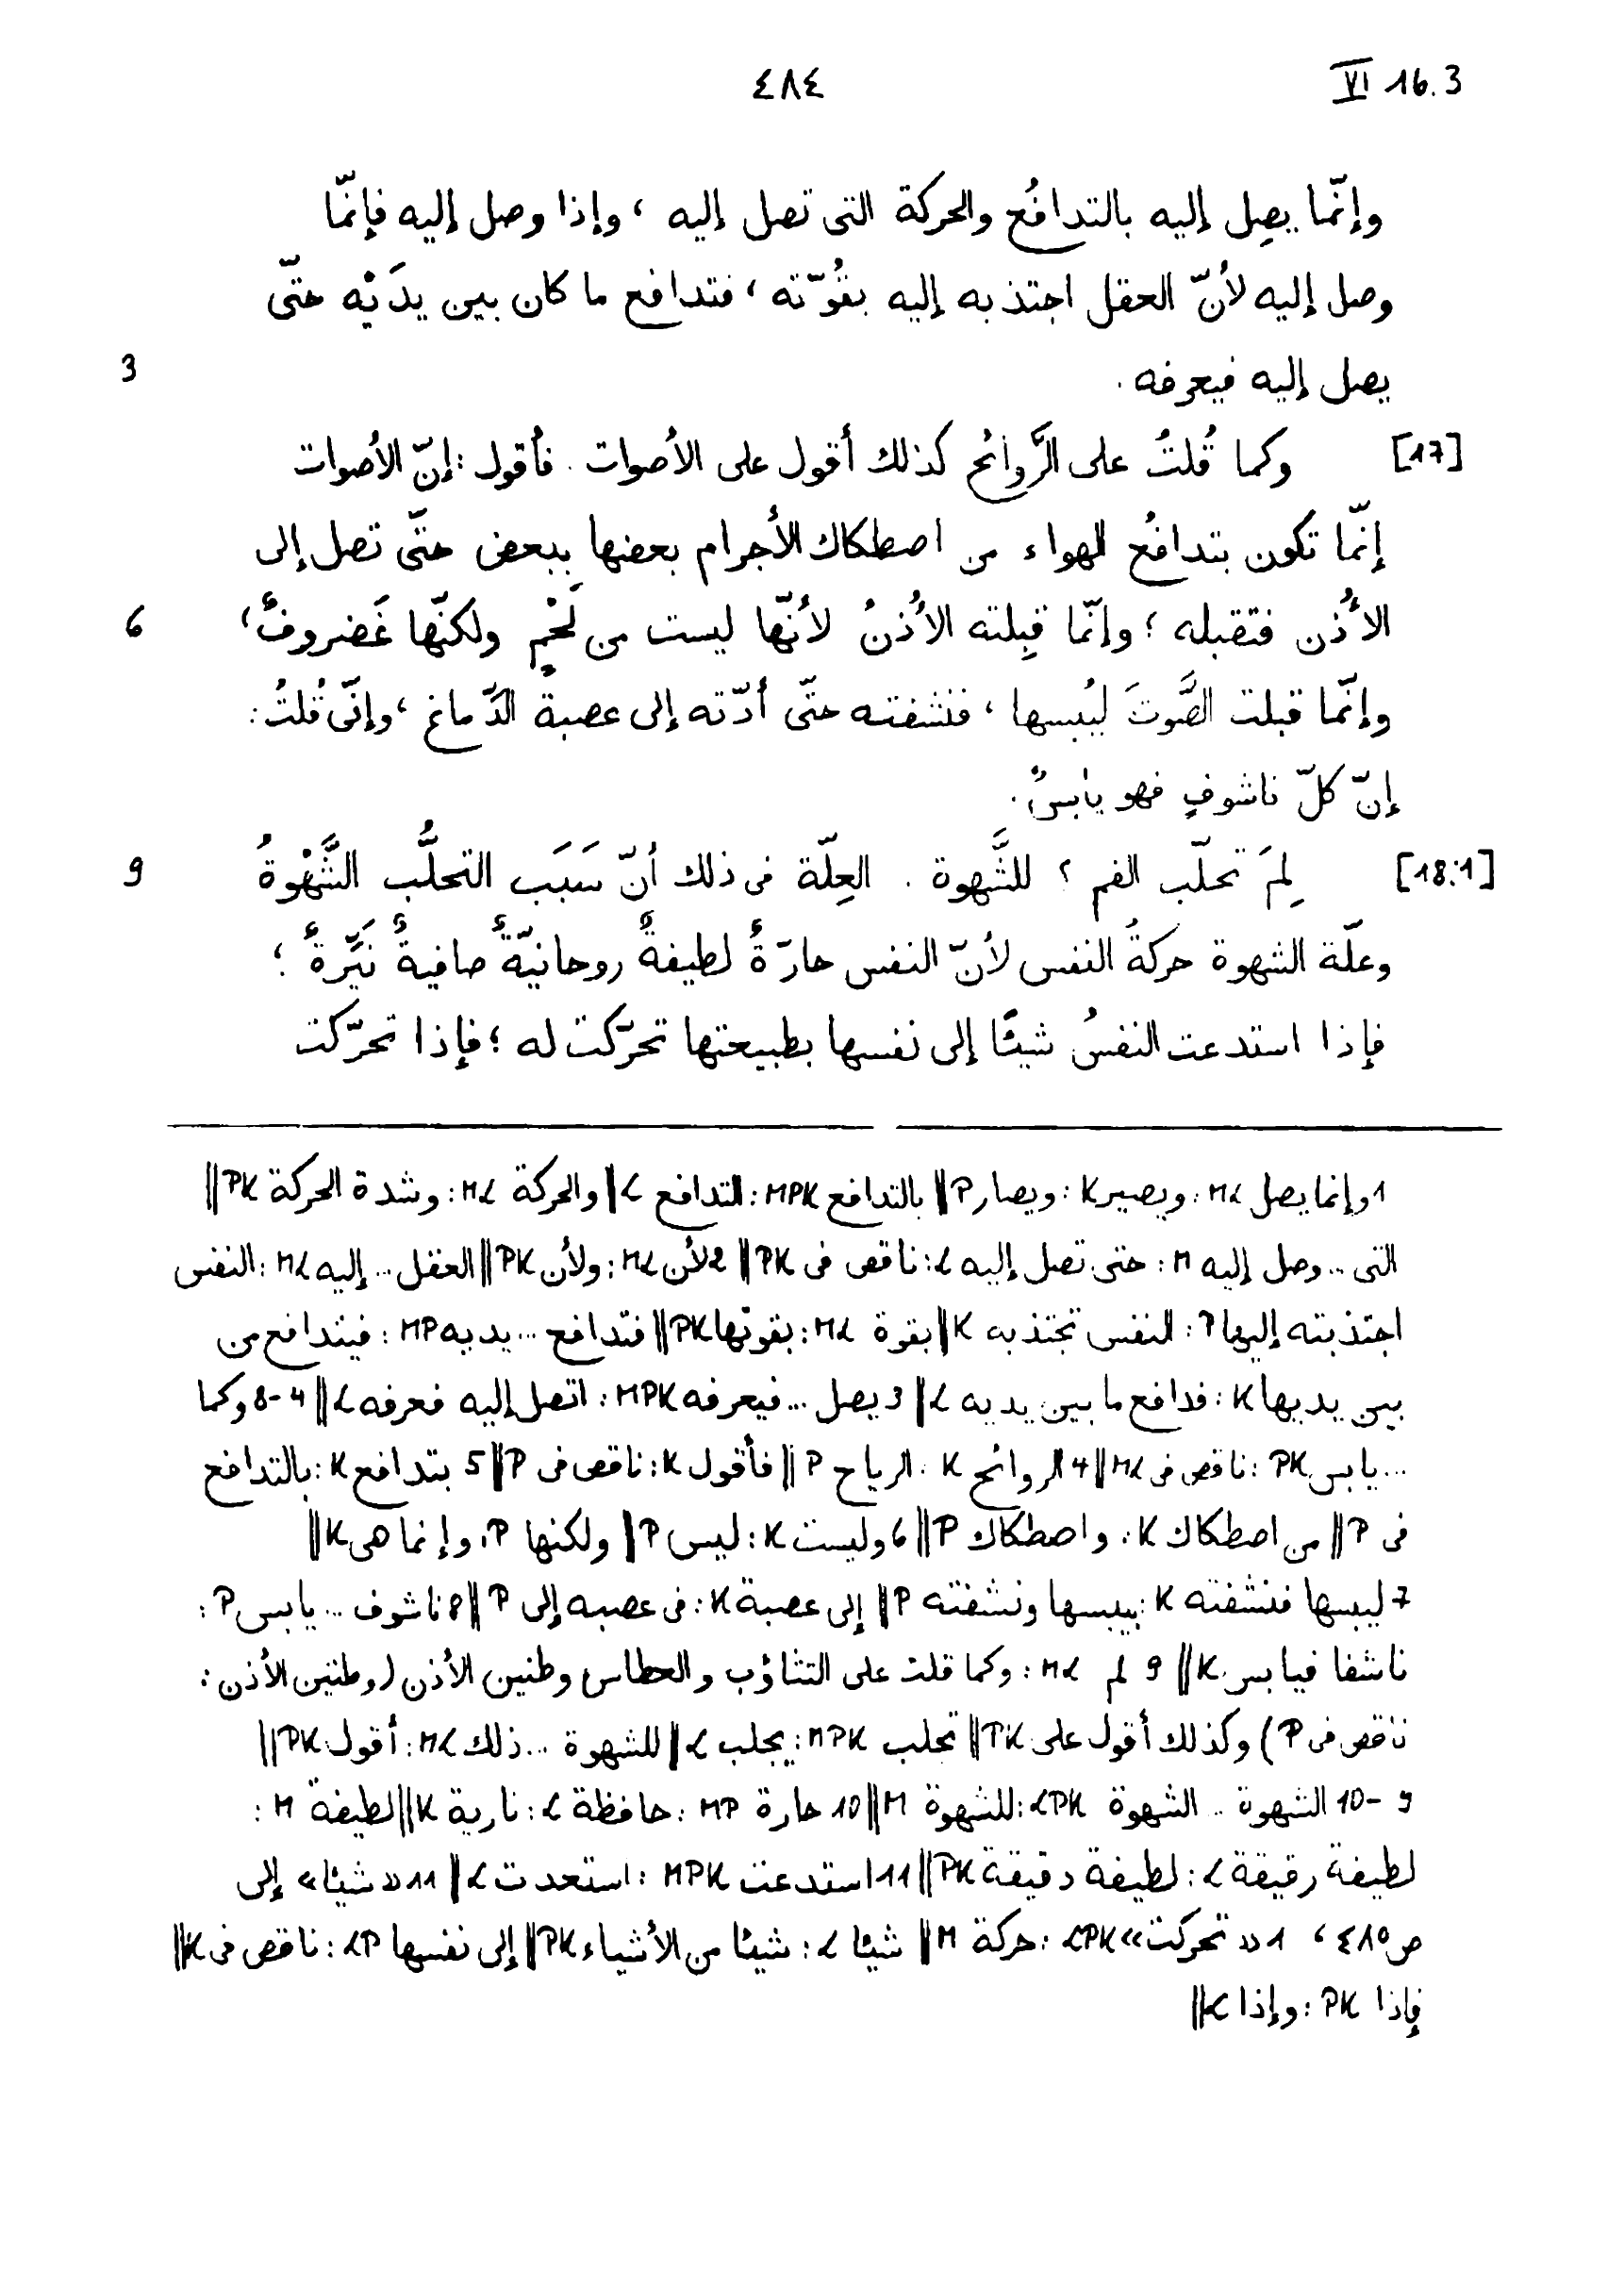 ٤٨٤ VI 16.3
وإنّما يصِل إليه بالتدافُع والحركة التى تصل إليه ، وإذا وصل إليه فإنّما
وصل إليه لأنّ العقل اجتذبه إليه بقُوّته ، فتدافع ما كان بين يدَيْه حتّى
يصل إليه فيعرفه . 3
[17] وكما قُلتُ على الرَّوائح كذلك أقول على الأصوات . فأقول : إنّ الأصوات
إنّما تكون بتدافُع الهواء من اصطكاك الأجرام بعضها ببعض حتّى تصل إلى
الأُذن فتقبله ؛ وإنّما قبِلته الأُذنُ لأنّها ليست من لَحْمٍ ولكنّها غَضروفٌ ، 6
وإنّما قبلت الصَّوتَ ليُبسها ، فنشفته حتّى أدّته إلى عصبة الدِّماغ ، وإنّى قُلتُ :
إنّ كلّ ناشوفٍ فهو يابسٌ .
[18:1] لِمَ تحلّب الفم ؟ للشَّهوة . العِلّة فى ذلك أنّ سَبَب التحلُّب الشَّهْوةُ 9
وعلّة الشهوة حركةُ النفس لأنّ النفس حارّةٌ لطيفةٌ روحانيّةٌ صافيةٌ نَيِّرةٌ ؛
فإذا استدعت النفسُ شيئًا إلى نفسها بطبيعتها تحرّكت له ؛ فإذا تحرّكت
1 وإنما يصل ML : ويصير K : ويصار P || بالتدافع MPK : التدافع L || والحركة ML : وشدة الحركة PK ||
التى .. وصل إليه M : حتى تصل إليه L : ناقص فى PK || 2 لأن ML : ولأن PK || العقل ... إليه ML : النفس
اجتذبته إليها P : النفس تجتذبه K || بقوة ML : بقوتها PK || فتدافع ... يديه MP : فيتدافع من
بين يديها K : فدافع ما بين يديه L || 3 يصل ... فيعرفه MPK : اتصل إليه فعرفه L || 4-8 وكما
... يابس PK : ناقص فى ML || 4 الروائح K : الرياح P || فأقول K : ناقص فى P || 5 بتدافع K : بالتدافع
فى P || من اصطكاك K : واصطكاك P || 6 وليست K : ليس P || ولكنها P : وإنما هى K ||
7 ليبسها فنشفته K : بيبسها ونشفته P || إلى عصبة K : فى عصبه إلى P || 8 ناشوف ... يابس P :
ناشفا فيابس K || 9 لم ML : وكما قلت على التثاؤب والعطاس وطنين الأذن (وطنين الأذن :
ناقص فى P) وكذلك أقول على PK || تحلب MPK : يجلب L || للشهوة ... ذلك ML : أقول PK ||
9-10 الشهوة .. الشهوة LPK : للشهوة M || 10 حارة MP : حافظة L : نارية K || لطيفة M :
لطيفة رقيقة L : لطيفة دقيقة PK || 11 استدعت MPK : استعدت L || 11 «شيئا» إلى
ص ٤٨٥ ، 1 «تحركت» LPK : حركة M || شيئا L : شيئا من الأشياء PK || إلى نفسها LP : ناقص فى K ||
فإذا PK : وإذا L ||